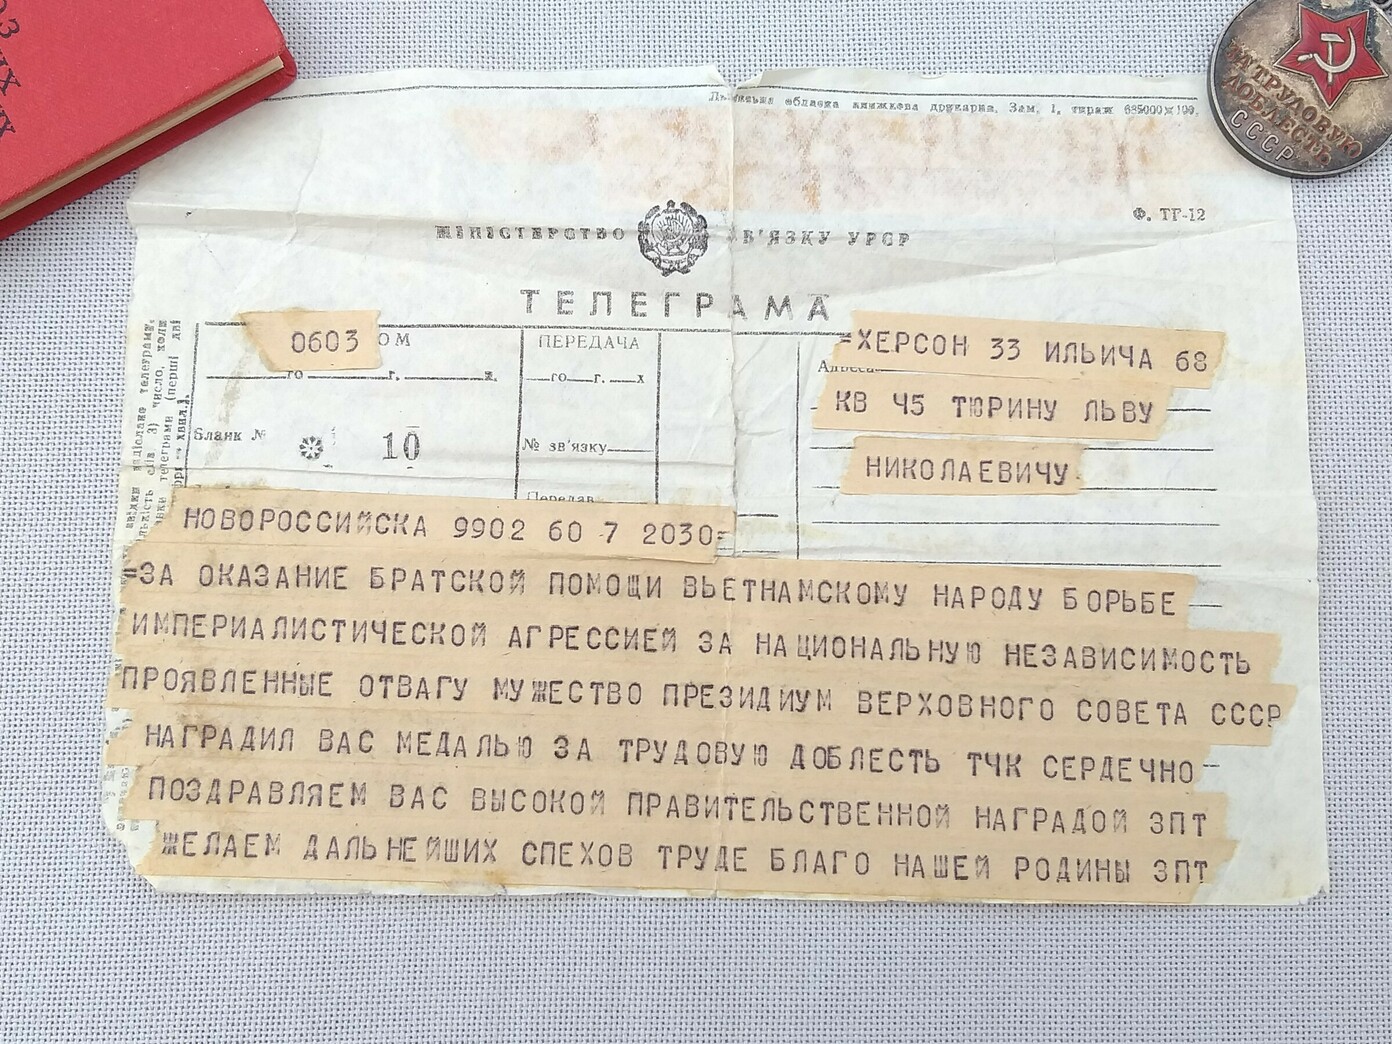 Зам. 1, тираж 685000×100.
Ф. ТГ-12
МІНІСТЕРСТВО ЗВ'ЯЗКУ УРСР
ТЕЛЕГРАМА
0603
ПЕРЕДАЧА
го г. х.
го г. х
Адреса
Бланк №
10
№ зв'язку
Передав
=ХЕРСОН 33 ИЛЬИЧА 68
КВ 45 ТЮРИНУ ЛЬВУ
НИКОЛАЕВИЧУ
НОВОРОССИЙСКА 9902 60 7 2030=
=ЗА ОКАЗАНИЕ БРАТСКОЙ ПОМОЩИ ВЬЕТНАМСКОМУ НАРОДУ БОРЬБЕ
ИМПЕРИАЛИСТИЧЕСКОЙ АГРЕССИЕЙ ЗА НАЦИОНАЛЬНУЮ НЕЗАВИСИМОСТЬ
ПРОЯВЛЕННЫЕ ОТВАГУ МУЖЕСТВО ПРЕЗИДИУМ ВЕРХОВНОГО СОВЕТА СССР
НАГРАДИЛ ВАС МЕДАЛЬЮ ЗА ТРУДОВУЮ ДОБЛЕСТЬ ТЧК СЕРДЕЧНО
ПОЗДРАВЛЯЕМ ВАС ВЫСОКОЙ ПРАВИТЕЛЬСТВЕННОЙ НАГРАДОЙ ЗПТ
ЖЕЛАЕМ ДАЛЬНЕЙШИХ СПЕХОВ ТРУДЕ БЛАГО НАШЕЙ РОДИНЫ ЗПТ
ЗА ТРУДОВУЮ
ДОБЛЕСТЬ
СССР